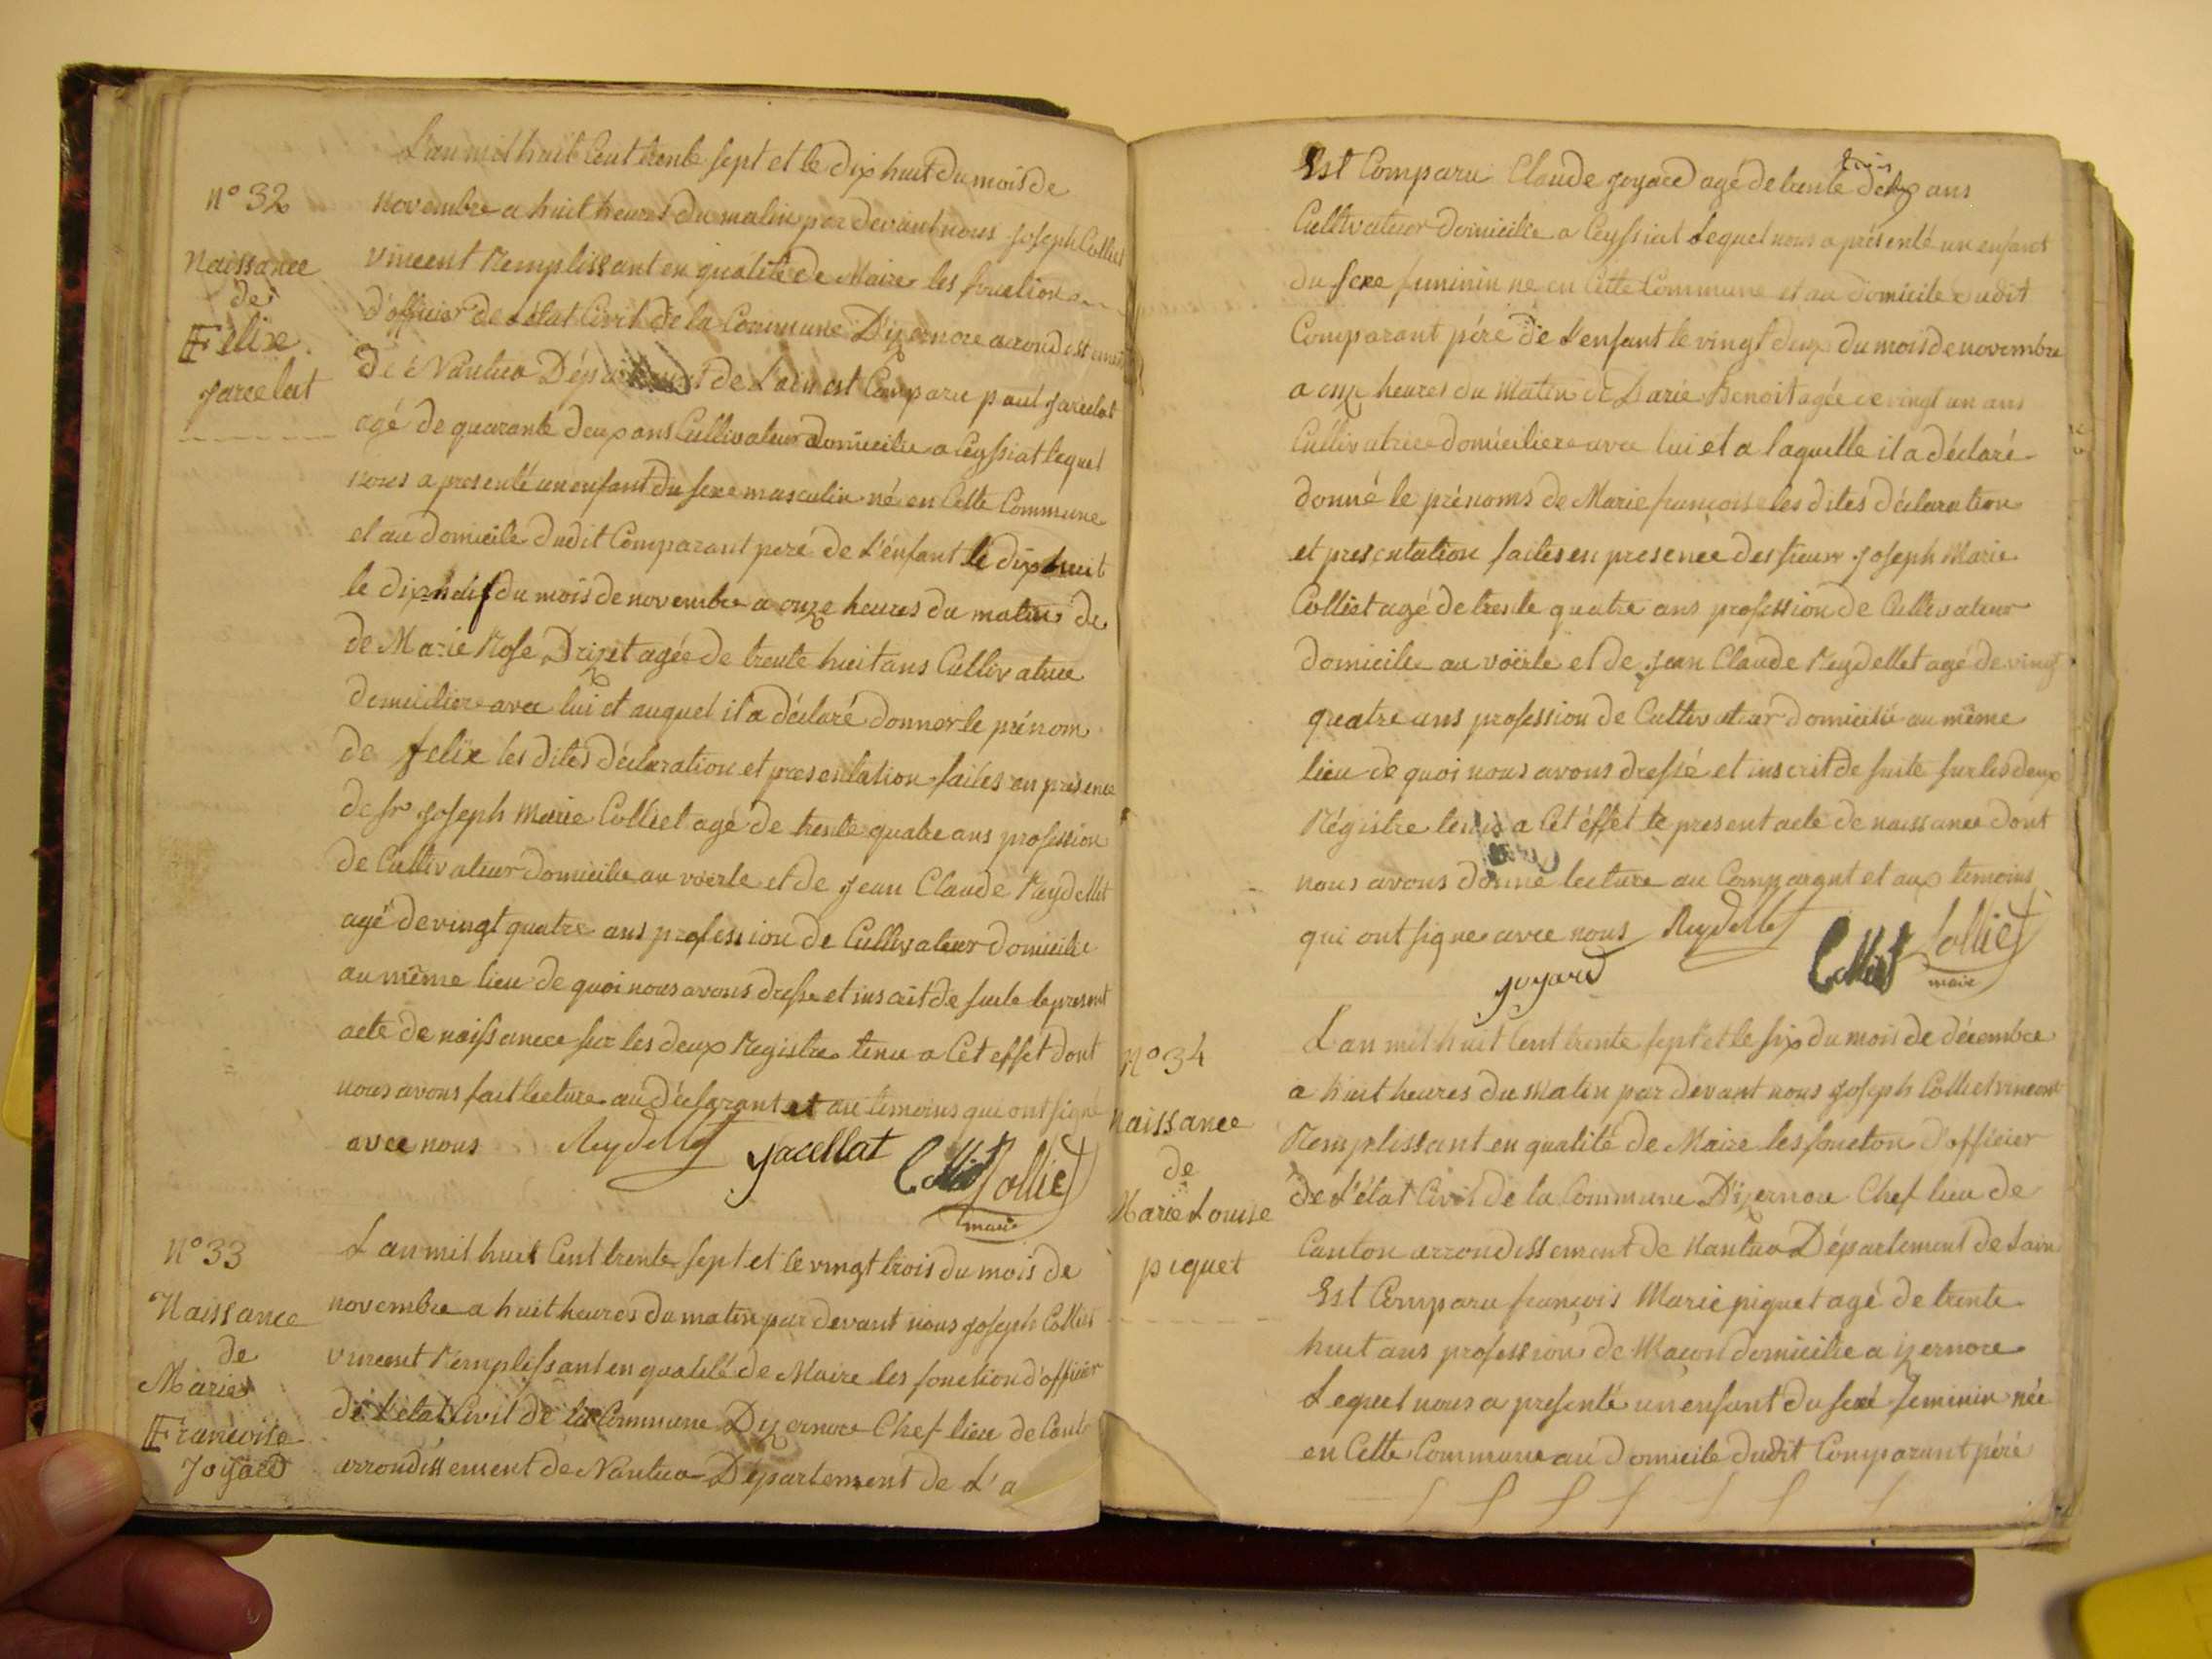 L'an mil huit Cent trente sept et le dix huit du mois de
n° 32
novembre a huit heures du matin par devant nous joseph Colliet
Naissance
de
Felix
jarcelat
vincent Remplissant en qualité de Maire les fonction
d'officier de l'état Civil de la Commune D'izernore arondissement
de Nantua Département de l'ain est Comparu paul jarcelat
agé de quarante deux ans Cultivateur domicilie a Ceyssiat lequel
nous a presenté un enfant du sexe masculin né en Cette Commune
et au domicile dudit Comparant pere de l'énfant le dix huit
le dix du mois de novembre a onze heures du matin de
de Marie Rose Drizet agée de trente huit ans Cultivatrice
domiciliere avec lui et auquel il a déclaré donner le prénom
de felix les dites déclaration et presentation faites en présence
de sr joseph Marie Colliet agé de trente quatre ans profession
de Cultivateur domicilie au voerle et de jean Claude Reydellet
agé de vingt quatre ans profession de Cultivateur domicilie
au même lieu de quoi nous avons dressé et inscrit de suite le present
acte de naissance sur les deux Registre tenu a Cet effet dont
nous avons fait lecture au déclarant et au temoins qui ont signé
avec nous Reydellet jacellat Colliet Colliet
maire
n° 33
Naissance
de
Marie
Françoise
Joyard
L'an mil huit Cent trente sept et le vingt trois du mois de
novembre a huit heures du matin par devant nous joseph Colliet
vincent Remplissant en qualité de Maire les fonction d'officier
de l'état Civil de la Commune D'izernore Chef lieu de Cant
arrondissement de Nantua Département de L'a
Est Comparu Claude joyard agé de trente trois deux ans
Cultivateur domicilie a Ceyssiat Lequel nous a présenté un enfant
du sexe feminin ne en Cette Commune et au domicile dudit
Comparant pére de l'enfant le vingt deux du mois de novembre
a onze heures du Matin de Marie Benoit agée de vingt un ans
Cultivatrice domiciliere avec lui et a laquelle il a déclaré
donné le prénoms de Marie françoise les dites déclaration
et presentation faites en presence des sieur joseph Marie
Colliet agé de trente quatre ans profession de Cultivateur
domicilie au voerle et de jean Claude Reydellet agé de vingt
quatre ans profession de Cultivateur domicilié au même
lieu de quoi nous avons dressé et inscrit de suite sur les deux
Régistre tenus a Cet éffet le present acte de naissance dont
nous avons donné lecture au Comparant et aux temoins
qui ont signe avec nous Reydellet Colliet Colliet
joyard maire
n° 34
Naissance
de
Marie Louise
piquet
L'an mil huit Cent trente sept et le six du mois de décembre
a huit heures du Matin par devant nous joseph Colliet vincent
Remplissant en qualité de Maire les foncton d'officier
de l'état Civil de la Commune D'izernore Chef lieu de
Canton arrondissement de Nantua Département de l'ain
Est Comparu françois Marie piquet agé de trente
huit ans profession de Macon domicilie a izernore
Lequel nous a presenté un enfant du sexé feminin née
en Cette Commune au domicile dudit Comparant péré